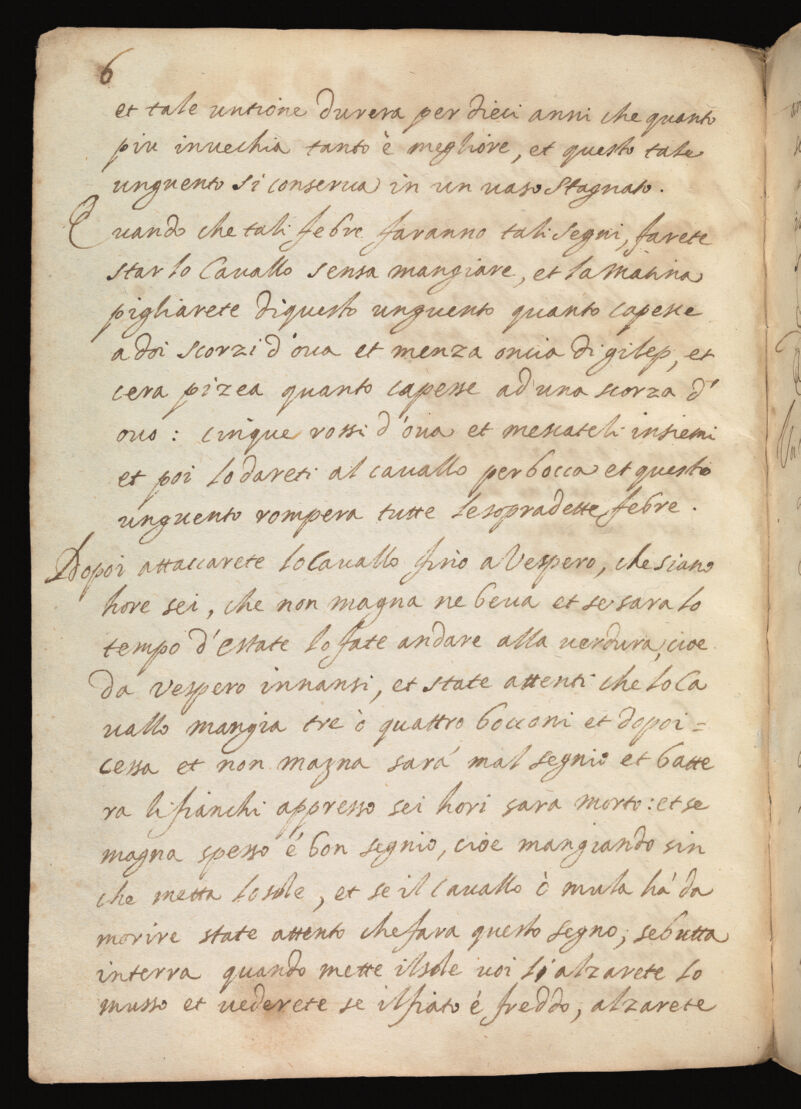 6
et tale untione durera per dieci anni che quanto
piu inuechia tanto è megliore, et questo tale
unguento si conserua in un uaso stagnato.
Quando che tali febre faranno tali segni, farete
star lo Cauallo sensa mangiare, et la matina
pigliarete di questo unguento quanto capesse
a doi scorzi d'oua et menza oncia di gilep, et
cera pizea quanto capesse ad una scorza d'
ouo: cinque rossi d'oua et mescateli insiemi
et poi lo dareti al cauallo per bocca et questo
unguento rompera tutte le sopradette febre.
Ddopoi attaccarete lo Cauallo fino a Vespero, che siano
hore sei, che non magna ne beua et se sara lo
tempo d'estate lo fate andare alla uerdura, cioe
da Vespero innansi, et state attenti che lo Ca
uallo mangia tre ò quattro bocconi et dopoi=
cessa et non magna sará mal segnio et batte
ra li fianchi appresso sei hori sara morto: et se
magna spesso é bon segnio, cioe mangiando sin
che metta lo sole, et se il Cauallo ò mula há da
morire state attento che fara questo segno, se butta
in terra quando mette il sole uoi li alzarete lo
musso et uederete se il fiato é freddo, alzarete